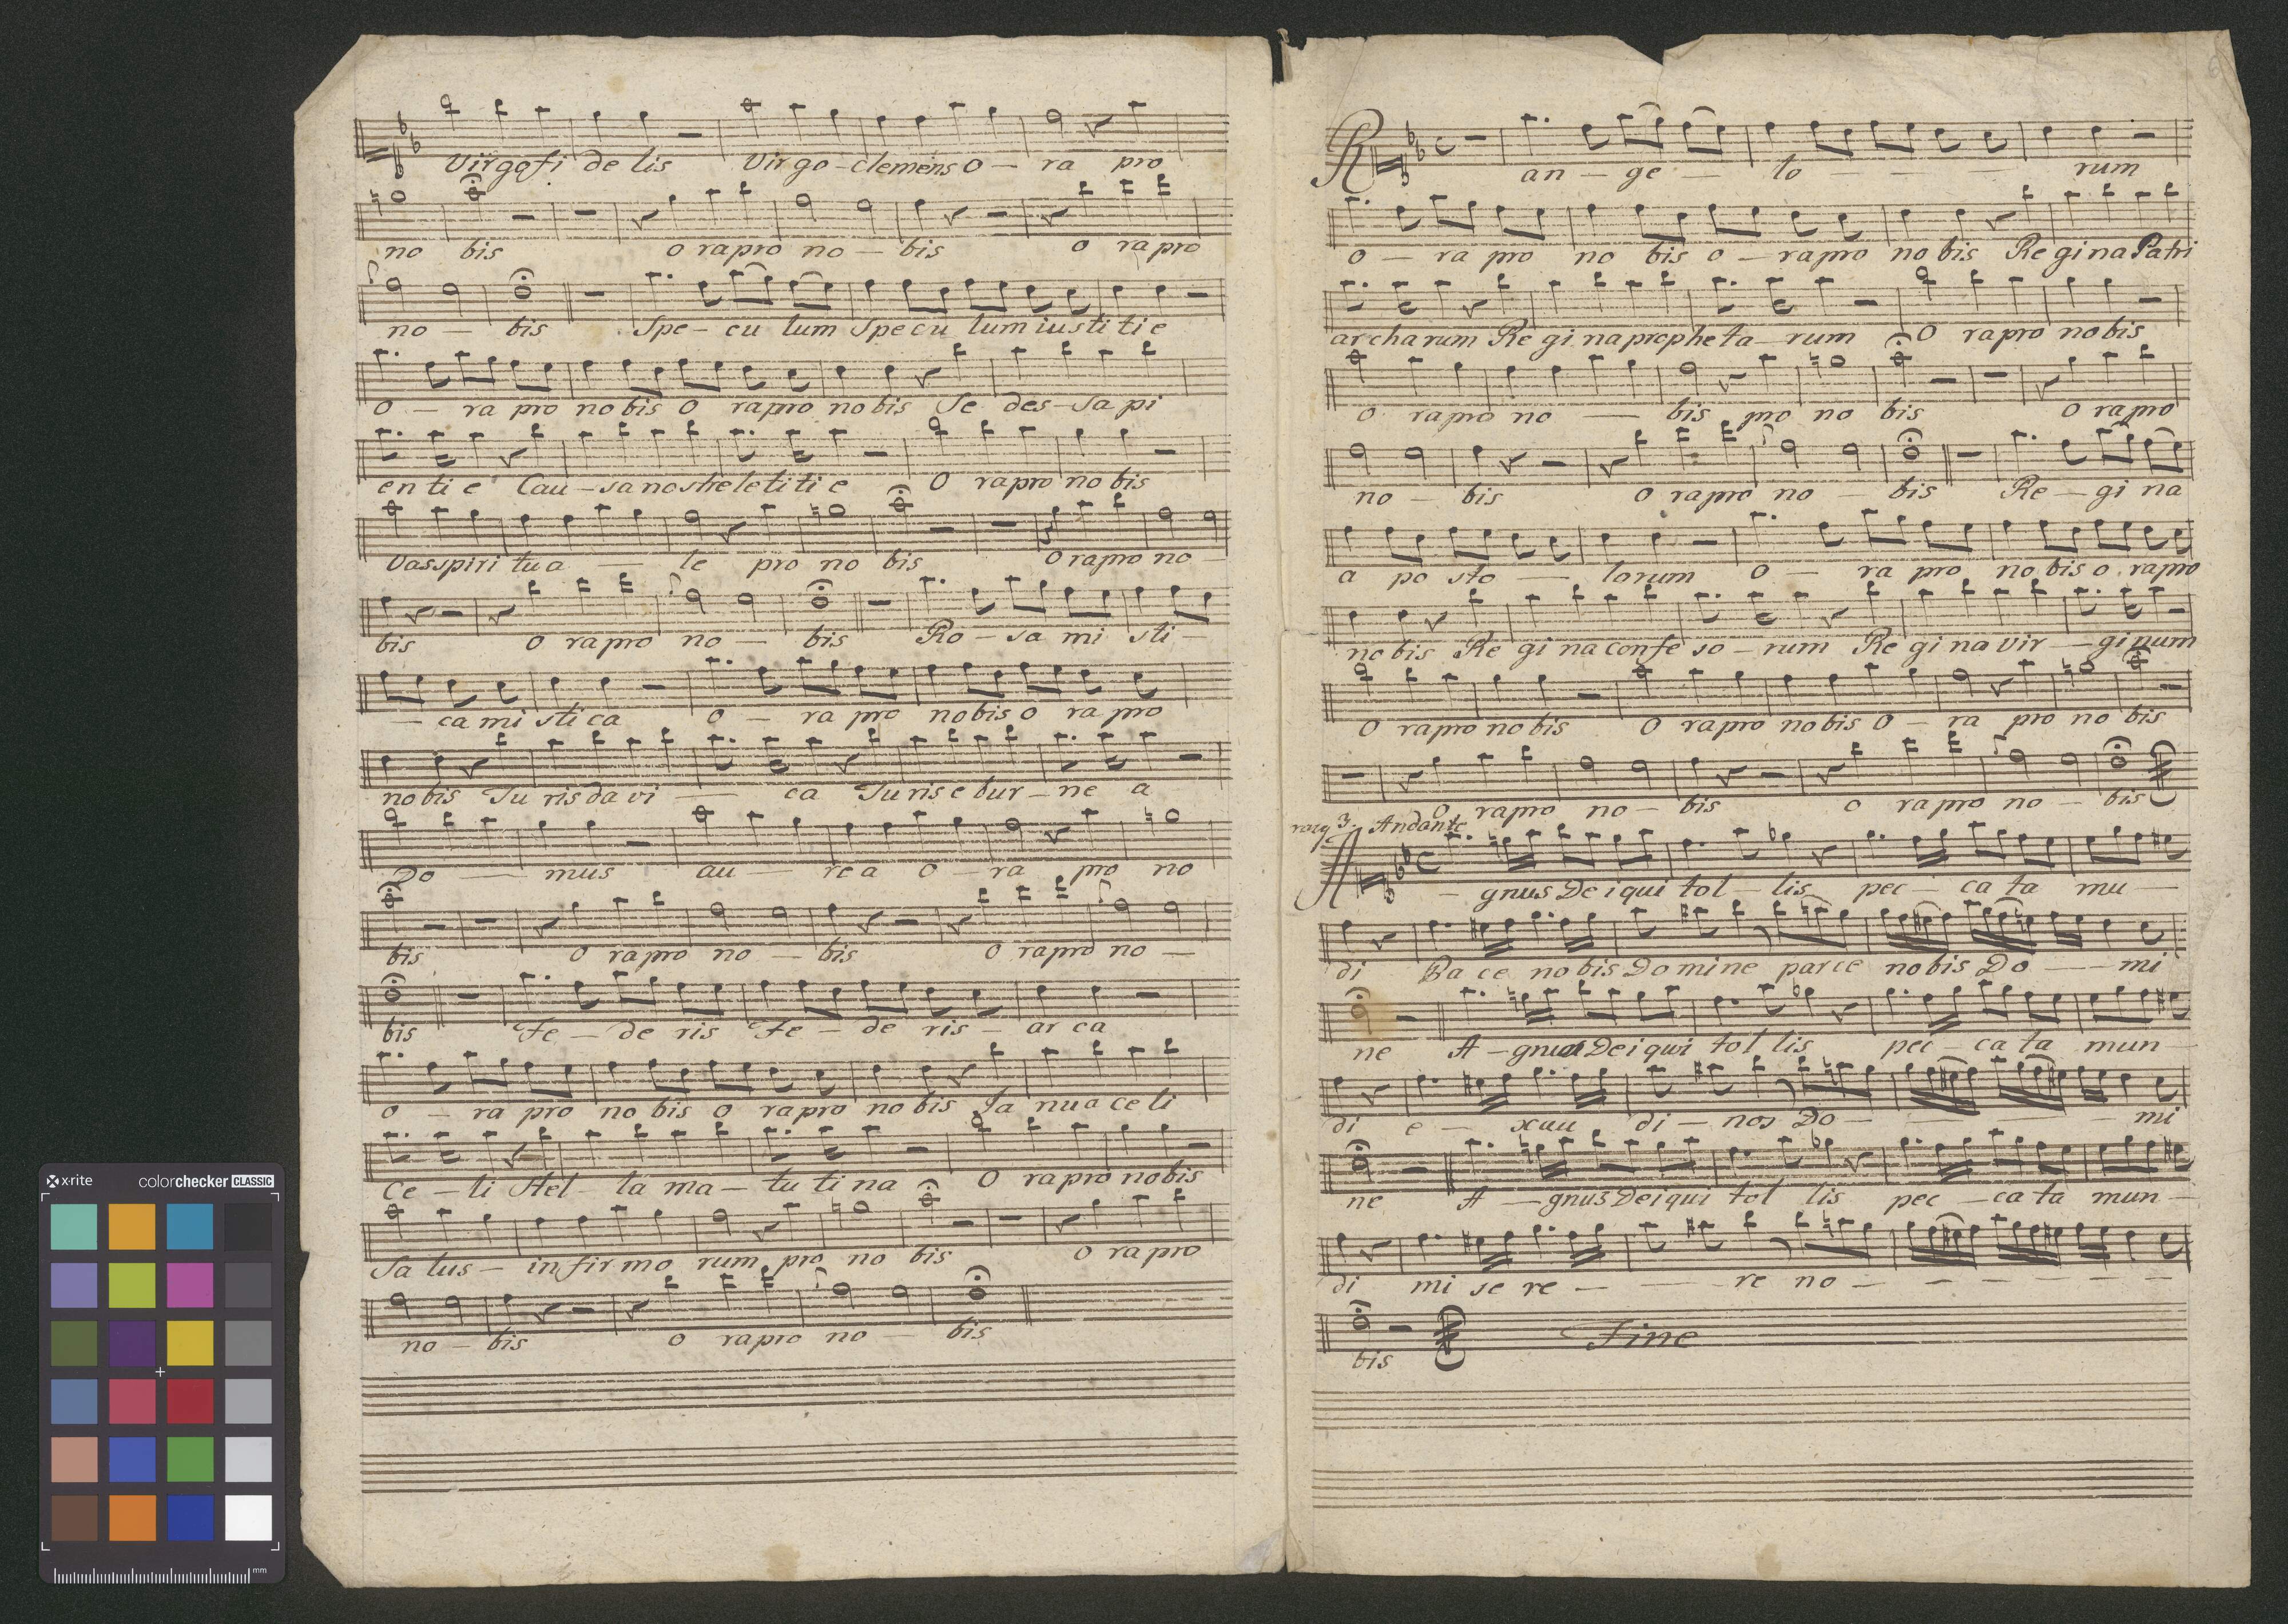 Virgo fi de lis Virgo - clemens o - ra pro
no bis o ra pro no - bis o ra pro
no - bis Spe - cu lum Specu lum iusti ti e
o - ra pro no bis o ra pro no bis Se des - sa pi
en ti e Cau - sa nostre le ti ti e O ra pro no bis
Vas spiri tu a - le pro no bis O ra pro no -
bis o ra pro no - bis Ro - sa mi sti -
- ca mi sti ca o - ra pro no bis o ra pro
no bis Tu ris da vi - ca Tu ris e bur - ne a
Do - mus au - re a o - ra pro no
bis o ra pro no - bis o ra pro no -
bis Fe - de ris Fe - de ris - ar ca
o - ra pro no bis o ra pro no bis Ja nu a ce li
Ce - li stel - la ma - tu ti na O ra pro no bis
Sa lus - in fir mo rum pro no bis o ra pro
no - bis o ra pro no - bis
R an - ge - lo - - - - rum
o - ra pro no bis o - ra pro no bis Re gi na Patri
ar cha rum Re gi na prophe ta - rum O ra pro no bis
o ra pro no - bis pro no bis o ra pro
no - bis o ra pro no - bis Re - gi na
a po sto - lorum o - ra pro no bis o ra pro
no bis Re gi na confe so - rum Re gi na vir - gi num
O ra pro no bis O ra pro no bis O - ra pro no bis
o ra pro no - bis o ra pro no - bis
3. Andante
A - gnus De i qui tol - lis pec - ca ta mu -
di Pa ce no bis Do mi ne parce no bis Do - - mi
ne A - gnus De i qui tol lis pec - ca ta mun -
di e - xau di - nos Do - - - mi
ne A - gnus De i qui tol lis pec - ca ta mun -
di mi se re - - re no - - - - - -
bis Fine
x-rite colorchecker CLASSIC
mm